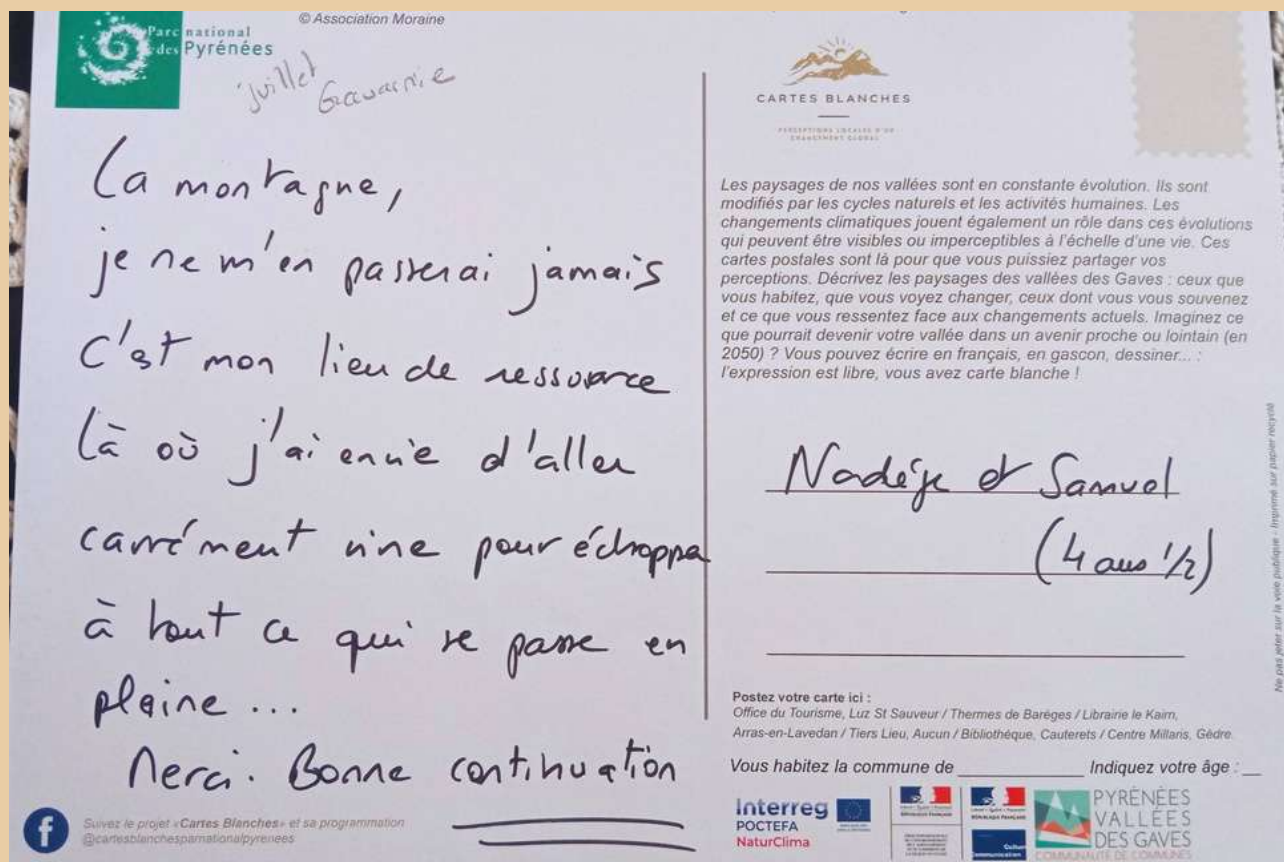 © Association Moraine
Parc national
des Pyrénées
juillet
Gavarnie
La montagne,
je ne m'en passerai jamais
C'est mon lieu de ressource
Là où j'ai envie d'aller
carrément vivre pour échapper
à tout ce qui se passe en
plaine ...
Merci. Bonne continuation
Suivez le projet «Cartes Blanches» et sa programmation
@cartesblanchesparnationalpyrenees
CARTES BLANCHES
PERCEPTIONS LOCALES D'UN
CHANGEMENT GLOBAL
Les paysages de nos vallées sont en constante évolution. Ils sont
modifiés par les cycles naturels et les activités humaines. Les
changements climatiques jouent également un rôle dans ces évolutions
qui peuvent être visibles ou imperceptibles à l'échelle d'une vie. Ces
cartes postales sont là pour que vous puissiez partager vos
perceptions. Décrivez les paysages des vallées des Gaves : ceux que
vous habitez, que vous voyez changer, ceux dont vous vous souvenez
et ce que vous ressentez face aux changements actuels. Imaginez ce
que pourrait devenir votre vallée dans un avenir proche ou lointain (en
2050) ? Vous pouvez écrire en français, en gascon, dessiner... :
l'expression est libre, vous avez carte blanche !
Nadège et Samuel
(4 ans 1/2)
Postez votre carte ici :
Office du Tourisme, Luz St Sauveur / Thermes de Barèges / Librairie le Kairn,
Arras-en-Lavedan / Tiers Lieu, Aucun / Bibliothèque, Cauterets / Centre Millaris, Gèdre.
Vous habitez la commune de ____________ Indiquez votre âge : __
Interreg
POCTEFA
NaturClima
PYRÉNÉES
VALLÉES
DES GAVES
COMMUNAUTÉ DE COMMUNES
Ne pas jeter sur la voie publique - Imprimé sur papier recyclé